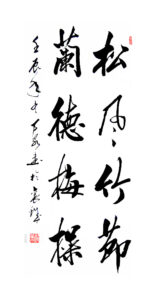 松風竹節
蘭德梅操
壬辰
書於